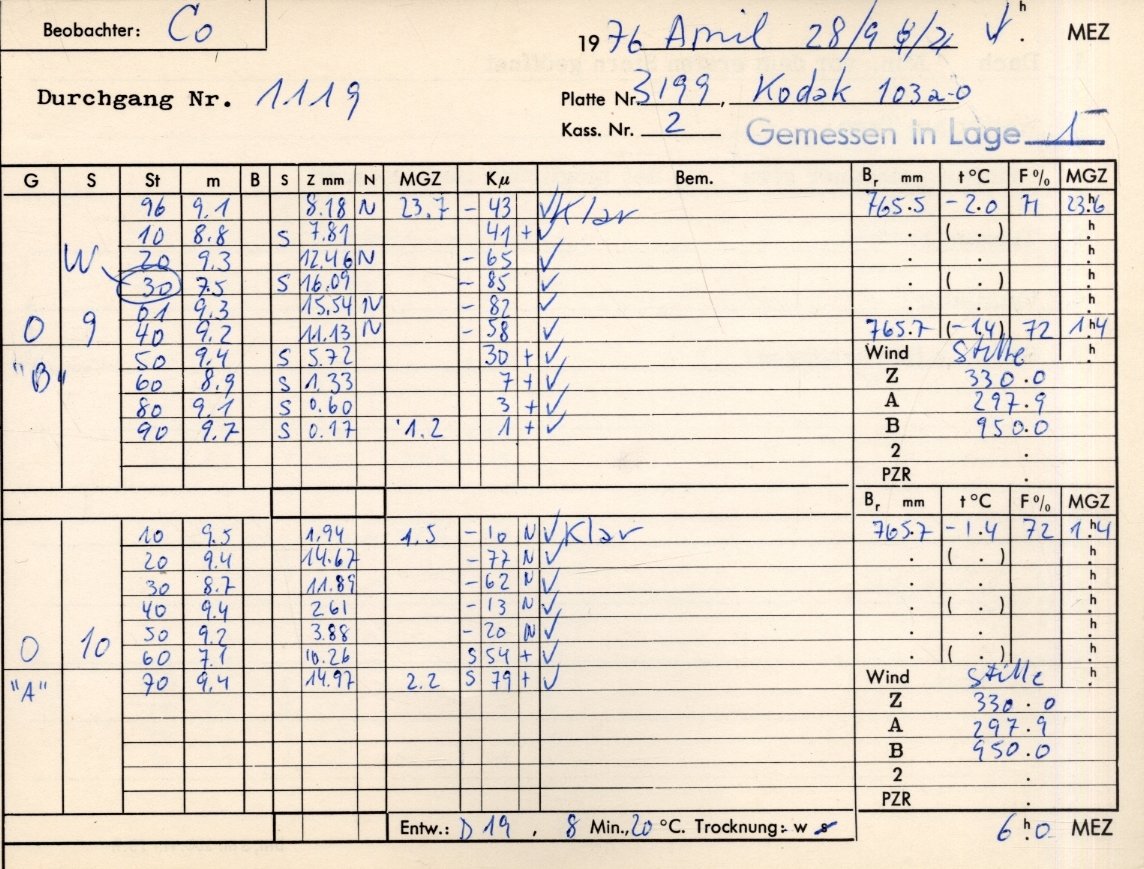 Beobachter: Co
1976 April 28/9 h MEZ
Durchgang Nr. 1119
Platte Nr. 3199, Kodak 103a-O
Kass. Nr. 2
Gemessen in Lage 1
G S St m B S Z mm N MGZ Kμ Bem. Br mm t °C F % MGZ
96 9.1 8.18 N 23.7 - 43 ✓ Klar 765.5 -2.0 71 23.h6
10 8.8 S 7.81 41 + ✓ . ( . ) .h
W 20 9.3 12.46 N - 65 ✓ . .h
30 7.5 S 16.09 - 85 ✓ . ( . ) .h
01 9.3 15.54 N - 82 ✓ . .h
0 9 40 9.2 11.13 N - 58 ✓ 765.7 (-1.4) 72 1.h4
"B" 50 9.4 S 5.72 30 + ✓ Wind Stille .h
60 8.9 S 1.33 7 + ✓ Z 330.0
80 9.1 S 0.60 3 + ✓ A 297.9
90 9.7 S 0.17 1.2 1 + ✓ B 950.0
2 .
PZR .
Br mm t °C F % MGZ
10 9.5 1.94 1.5 - 10 N ✓ Klar 765.7 -1.4 72 1.h4
20 9.4 14.67 - 77 N ✓ . ( . ) .h
30 8.7 11.89 - 62 N ✓ . .h
40 9.4 2.61 - 13 N ✓ . ( . ) .h
50 9.2 3.88 - 20 N ✓ . .h
0 10 60 7.1 10.26 S 54 + ✓ . ( . ) .h
"A" 70 9.4 14.97 2.2 S 79 + ✓ Wind Stille .h
Z 330.0
A 297.9
B 950.0
2 .
PZR .
Entw.: D 19, 8 Min., 20 °C. Trocknung: w s
6.h0 MEZ